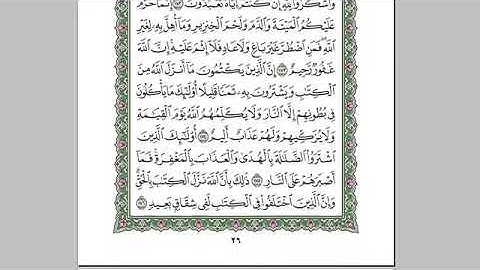 وَٱشۡكُرُواْ لِلَّهِ إِن كُنتُمۡ إِيَّاهُ تَعۡبُدُونَ ١٧٢ إِنَّمَا حَرَّمَ
عَلَيۡكُمُ ٱلۡمَيۡتَةَ وَٱلدَّمَ وَلَحۡمَ ٱلۡخِنزِيرِ وَمَآ أُهِلَّ بِهِۦ لِغَيۡرِ
ٱللَّهِۖ فَمَنِ ٱضۡطُرَّ غَيۡرَ بَاغٖ وَلَا عَادٖ فَلَآ إِثۡمَ عَلَيۡهِۚ إِنَّ ٱللَّهَ
غَفُورٞ رَّحِيمٌ ١٧٣ إِنَّ ٱلَّذِينَ يَكۡتُمُونَ مَآ أَنزَلَ ٱللَّهُ مِنَ
ٱلۡكِتَٰبِ وَيَشۡتَرُونَ بِهِۦ ثَمَنٗا قَلِيلًا أُوْلَٰٓئِكَ مَا يَأۡكُلُونَ
فِي بُطُونِهِمۡ إِلَّا ٱلنَّارَ وَلَا يُكَلِّمُهُمُ ٱللَّهُ يَوۡمَ ٱلۡقِيَٰمَةِ
وَلَا يُزَكِّيهِمۡ وَلَهُمۡ عَذَابٌ أَلِيمٌ ١٧٤ أُوْلَٰٓئِكَ ٱلَّذِينَ
ٱشۡتَرَوُاْ ٱلضَّلَٰلَةَ بِٱلۡهُدَىٰ وَٱلۡعَذَابَ بِٱلۡمَغۡفِرَةِۚ فَمَآ
أَصۡبَرَهُمۡ عَلَى ٱلنَّارِ ١٧٥ ذَٰلِكَ بِأَنَّ ٱللَّهَ نَزَّلَ ٱلۡكِتَٰبَ بِٱلۡحَقِّۗ
وَإِنَّ ٱلَّذِينَ ٱخۡتَلَفُواْ فِي ٱلۡكِتَٰبِ لَفِي شِقَاقِۭ بَعِيدٖ ١٧٦
٢٦